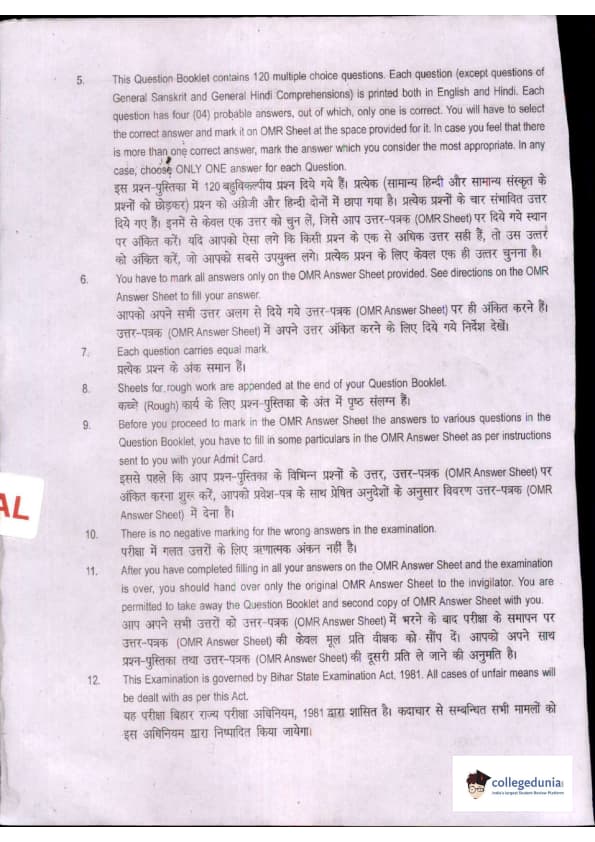 5. This Question Booklet contains 120 multiple choice questions. Each question (except questions of
General Sanskrit and General Hindi Comprehensions) is printed both in English and Hindi. Each
question has four (04) probable answers, out of which, only one is correct. You will have to select
the correct answer and mark it on OMR Sheet at the space provided for it. In case you feel that there
is more than one correct answer, mark the answer which you consider the most appropriate. In any
case, choose ONLY ONE answer for each Question.
इस प्रश्न-पुस्तिका में 120 बहुविकल्पीय प्रश्न दिये गये हैं। प्रत्येक (सामान्य हिन्दी और सामान्य संस्कृत के
प्रश्नों को छोड़कर) प्रश्न को अंग्रेजी और हिन्दी दोनों में छापा गया है। प्रत्येक प्रश्नों के चार संभावित उत्तर
दिये गए हैं। इनमें से केवल एक उत्तर को चुन लें, जिसे आप उत्तर-पत्रक (OMR Sheet) पर दिये गये स्थान
पर अंकित करें। यदि आपको ऐसा लगे कि किसी प्रश्न के एक से अधिक उत्तर सही हैं, तो उस उत्तर
को अंकित करें, जो आपको सबसे उपयुक्त लगे। प्रत्येक प्रश्न के लिए केवल एक ही उत्तर चुनना है।
6. You have to mark all answers only on the OMR Answer Sheet provided. See directions on the OMR
Answer Sheet to fill your answer.
आपको अपने सभी उत्तर अलग से दिये गये उत्तर-पत्रक (OMR Answer Sheet) पर ही अंकित करने हैं।
उत्तर-पत्रक (OMR Answer Sheet) में अपने उत्तर अंकित करने के लिए दिये गये निर्देश देखें।
7. Each question carries equal mark.
प्रत्येक प्रश्न के अंक समान हैं।
8. Sheets for rough work are appended at the end of your Question Booklet.
कच्चे (Rough) कार्य के लिए प्रश्न-पुस्तिका के अंत में पृष्ठ संलग्न हैं।
9. Before you proceed to mark in the OMR Answer Sheet the answers to various questions in the
Question Booklet, you have to fill in some particulars in the OMR Answer Sheet as per instructions
sent to you with your Admit Card.
इससे पहले कि आप प्रश्न-पुस्तिका के विभिन्न प्रश्नों के उत्तर, उत्तर-पत्रक (OMR Answer Sheet) पर
अंकित करना शुरू करें, आपको प्रवेश-पत्र के साथ प्रेषित अनुदेशों के अनुसार विवरण उत्तर-पत्रक (OMR
Answer Sheet) में देना है।
AL
10. There is no negative marking for the wrong answers in the examination.
परीक्षा में गलत उत्तरों के लिए ऋणात्मक अंकन नहीं है।
11. After you have completed filling in all your answers on the OMR Answer Sheet and the examination
is over, you should hand over only the original OMR Answer Sheet to the invigilator. You are
permitted to take away the Question Booklet and second copy of OMR Answer Sheet with you.
आप अपने सभी उत्तरों को उत्तर-पत्रक (OMR Answer Sheet) में भरने के बाद परीक्षा के समापन पर
उत्तर-पत्रक (OMR Answer Sheet) की केवल मूल प्रति वीक्षक को सौंप दें। आपको अपने साथ
प्रश्न-पुस्तिका तथा उत्तर-पत्रक (OMR Answer Sheet) की दूसरी प्रति ले जाने की अनुमति है।
12. This Examination is governed by Bihar State Examination Act, 1981. All cases of unfair means will
be dealt with as per this Act.
यह परीक्षा बिहार राज्य परीक्षा अधिनियम, 1981 द्वारा शासित है। कदाचार से सम्बन्धित सभी मामलों को
इस अधिनियम द्वारा निष्पादित किया जायेगा।
collegedunia
India's largest Student Review Platform